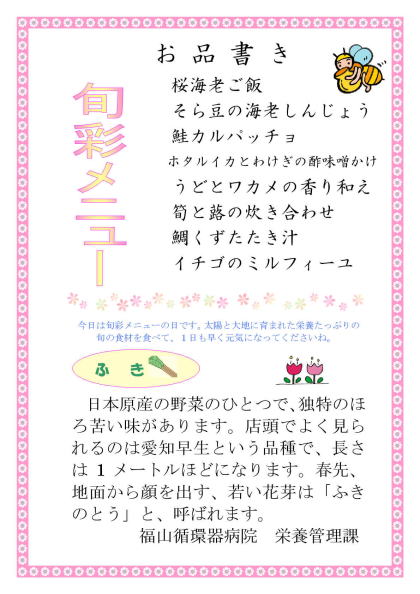 お品書き
旬彩メニュー
桜海老ご飯
そら豆の海老しんじょう
鮭カルパッチョ
ホタルイカとわけぎの酢味噌かけ
うどとワカメの香り和え
筍と蕗の炊き合わせ
鯛くずたたき汁
イチゴのミルフィーユ
今日は旬彩メニューの日です。太陽と大地に育まれた栄養たっぷりの
旬の食材を食べて、1日も早く元気になってくださいね。
ふき
日本原産の野菜のひとつで、独特のほ
ろ苦い味があります。店頭でよく見ら
れるのは愛知早生という品種で、長さ
は1メートルほどになります。春先、
地面から顔を出す、若い花芽は「ふき
のとう」と、呼ばれます。
福山循環器病院　栄養管理課